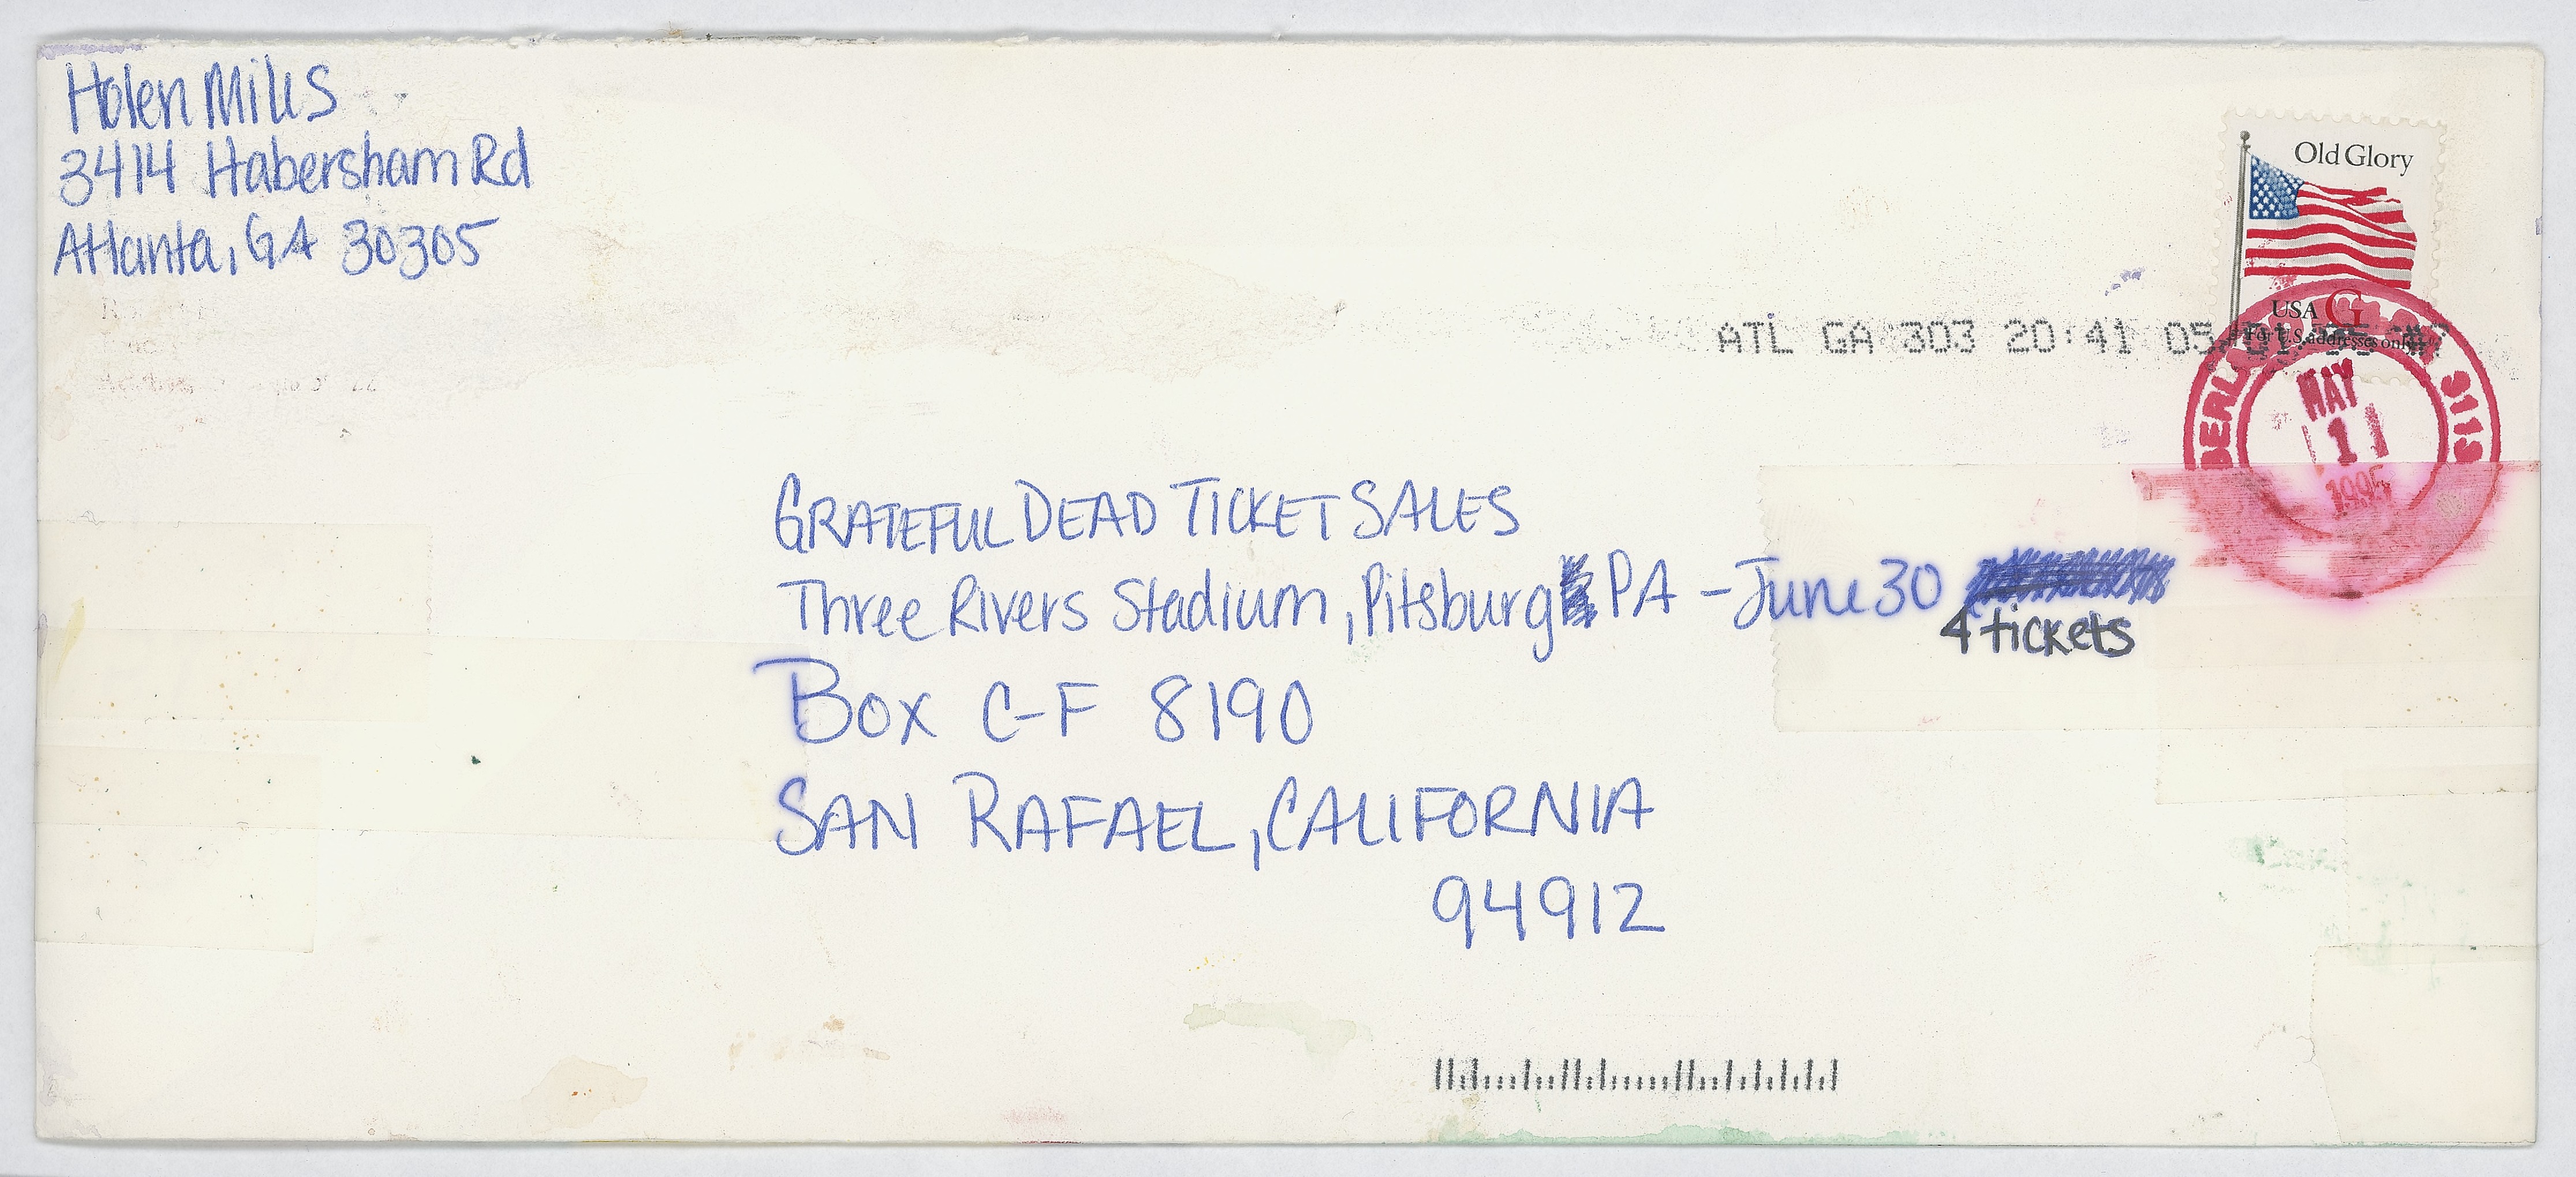 Helen Mills
3414 Habersham Rd
Atlanta, GA 30305
Old Glory
USA G
For U.S. addresses only
ATL GA 303 20:41 05/01/95 #7
MAY
1
1995
GRATEFUL DEAD TICKET SALES
Three Rivers Stadium, Pitsburg PA - June 30
4 tickets
Box C-F 8190
SAN RAFAEL, CALIFORNIA
94912